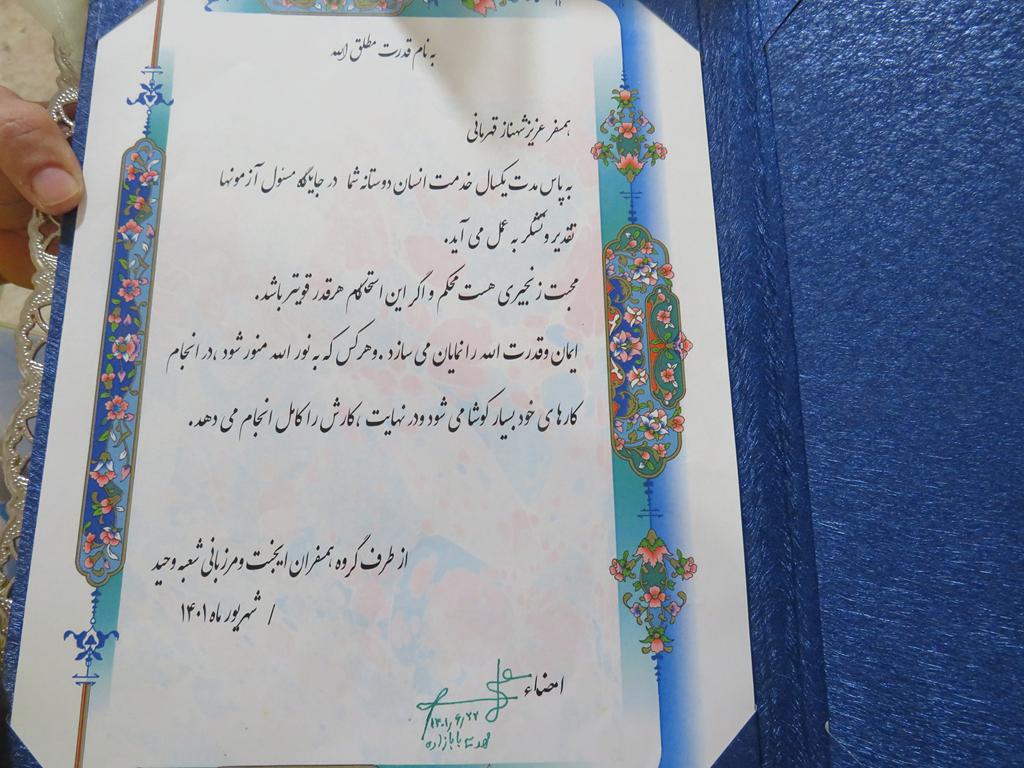 به نام قدرت مطلق الله
همسفر عزیز شهناز قهرمانی
به پاس مدت یکسال خدمت انسان دوستانه شما در جایگاه مسئول آزمونها
تقدیر و تشکر به عمل می آید.
محبت زنجیری هست محکم و اگر این استحکام هر قدر قویتر باشد.
ایمان وقدرت الله را نمایان می سازد ،وهرکس که به نور الله منور شود ،در انجام
کارهای خود بسیار کوشا می شود ودر نهایت ،کارش را کامل انجام می دهد.
از طرف گروه همسفران ایجنت ومرزبانی شعبه وحید
/ شهریور ماه ۱۴۰۱
امضاء
۱۴۰۱٫۶٫۲۲
بابازاده